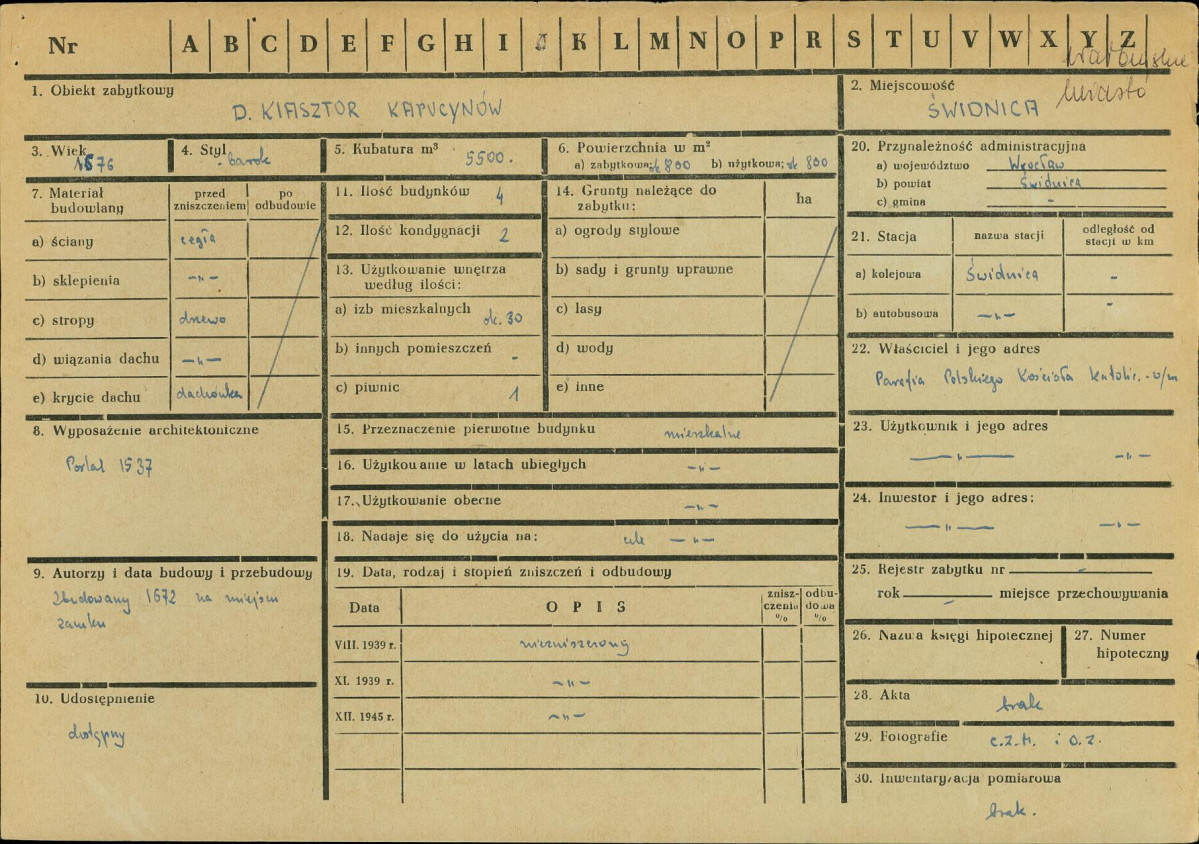 Nr A B C D E F G H I J K L M N O P R S T U V W X Y Z
miasto
1. Obiekt zabytkowy
D. KLASZTOR KAPUCYNÓW
2. Miejscowość
ŚWIDNICA
3. Wiek
1676
4. Styl
barok
5. Kubatura m³
5500.
6. Powierzchnia w m²
a) zabytkowa: ok 800 b) użytkowa: ok 800
7. Materiał budowlany
przed zniszczeniem
po odbudowie
a) ściany cegła
b) sklepienia —„—
c) stropy drzewo
d) wiązania dachu —„—
e) krycie dachu dachówka
8. Wyposażenie architektoniczne
Portal 1537
9. Autorzy i data budowy i przebudowy
Zbudowany 1672 na miejscu
zamku
10. Udostępnienie
dostępny
11. Ilość budynków 4
12. Ilość kondygnacji 2
13. Użytkowanie wnętrza
według ilości:
a) izb mieszkalnych ok. 30
b) innych pomieszczeń -
c) piwnic 1
14. Grunty należące do
zabytku:
ha
a) ogrody stylowe
b) sady i grunty uprawne
c) lasy
d) wody
e) inne
15. Przeznaczenie pierwotne budynku mieszkalne
16. Użytkowanie w latach ubiegłych —„—
17. Użytkowanie obecne —„—
18. Nadaje się do użycia na: cele —„—
19. Data, rodzaj i stopień zniszczeń i odbudowy
Data
OPIS
znisz-
czenia
%
odbu-
dowa
%
VIII. 1939 r. niezniszczony
XI. 1939 r. —„—
XII. 1945 r. —„—
20. Przynależność administracyjna
a) województwo Wrocław
b) powiat Świdnica
c) gmina -
21. Stacja
nazwa stacji
odległość od
stacji w km
a) kolejowa Świdnica -
b) autobusowa —„— -
22. Właściciel i jego adres
Parafia Polskiego Kościoła Katolic. - w/m
23. Użytkownik i jego adres
—„— —„—
24. Inwestor i jego adres:
—„— —„—
25. Rejestr zabytku nr -
rok - miejsce przechowywania
26. Nazwa księgi hipotecznej
27. Numer
hipoteczny
28. Akta
brak
29. Fotografie
C.Z.M. i O.Z.
30. Inwentaryzacja pomiarowa
brak.